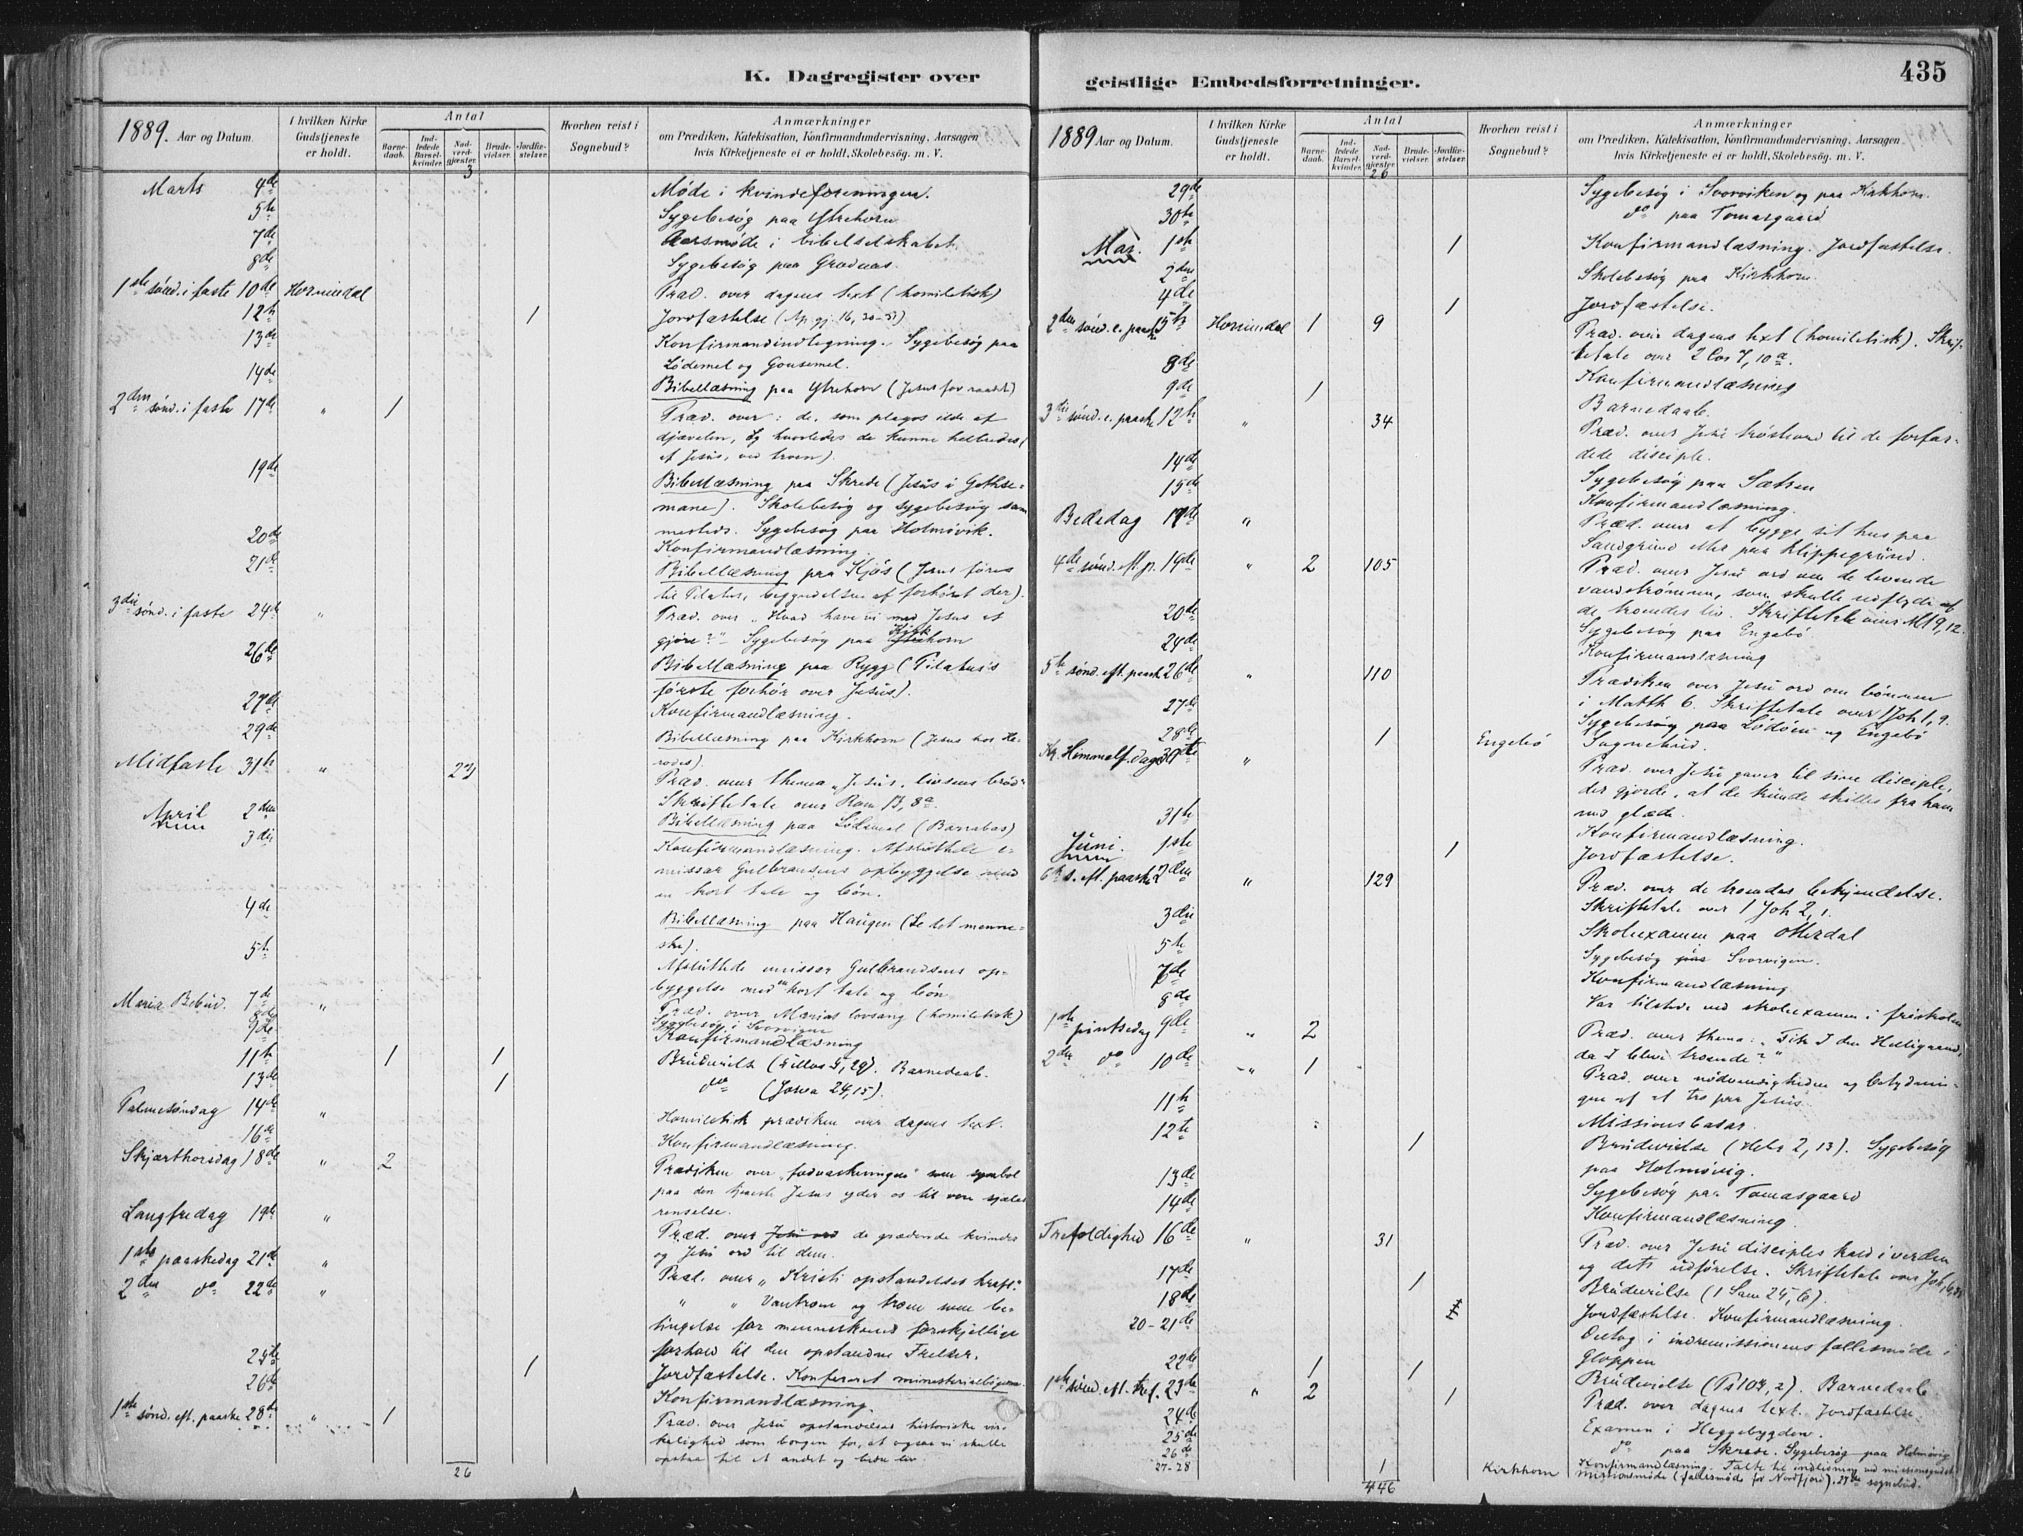 K. Dagregister over
1889. Aar og Datum.
I hvilken Kirke Gudstjeneste er holdt.
Antal
Barnedaab.
Indledede Barselkvinder.
Nadverdgjester.
Brudevielser.
Jordfæstelser.
Hvorhen reist i Sognebud?
Anmærkninger
om Prædiken, Katekisation, Konfirmandundervisning, Aarsagen
hvis Kirketjeneste ei er holdt, Skolebesøg m. V.
3
Marts 4de Møde i kvindeforeningen.
5te Sygebesøg paa Ytrehorn
7de Aarsmøde i bibelselskabet.
8de Sygebesøg paa Grodaas.
1ste sønd. i faste 10de Hornindal Præd. over dagens text (homiletisk)
12te 1 Jordfæstelse (Ap. gj. 16, 30-31)
13de Konfirmandindtegning. Sygebesøg paa
Lødemel og Gausemel.
14de Bibellæsning paa Ytrehorn (Jesus forraadt)
2den sønd. i faste 17de " 1 Præd. over: de, som plages ilde af
djævelen, og hvorledes de kunne helbredes (
af Jesus, ved troen).
19de Bibellæsning paa Skrede (Jesus i Gethse-
mane). Skolebesøg og sygebesøg sam
mesteds. Sygebesøg paa Holmøvik.
20de Konfirmandlæsning.
21de Bibellæsning paa Kjøs (Jesus føres
til Pilatus, begyndelsen af forhøret der).
3die sønd. i faste 24de " Præd. over "Hvad have vi med Jesus at
gjøre?" Sygebesøg paa Kirkhorn
26de Bibellæsning paa Rygg (Pilatus's
første forhør over Jesus).
27de Konfirmandlæsning.
29de Bibellæsning paa Kirkhorn (Jesus hos He-
rodes).
Midfaste 31te " 23 Præd. over thema "Jesus, livsens brød"
Skriftetale over Rom 13, 8a.
April 2den Bibellæsning paa Lødemel (Barrabas)
3die Konfirmandlæsning. Afsluttede e-
missær Gulbransens opbyggelse med
en kort tale og bøn.
4de Bibellæsning paa Haugen (Se det menne-
ske).
5te Afsluttede emissær Gulbrandsens op-
byggelse med en kort tale og bøn
Mariæ Bebud. 7de " Præd. over Marias lovsang (homiletisk)
8de Sygebesøg i Svorvigen
9de Konfirmandlæsning
11te 1 1 Brudevielse. Barnedaab.
13de 1 do (Josva 24,15).
Palmesøndag 14de " Homiletisk prædiken over dagens text.
16de Konfirmandlæsning.
Skjærthorsdag 18de " 2 Prædiken over "fodvaskningen" som symbol
paa den tjeneste Jesus yder os til vore sjæles
renselse.
Langfredag 19de " Præd. over Jesu ord de grædende kvinder
og Jesu ord til dem.
1ste paaskedag 21de " Præd. over "Kristi opstandelses kraft".
2den do 22de " " " Vantroen og troen som be-
tingelse for menneskenes forskjellige
forhold til den opstandne Frelser.
25de 1 Jordfæstelse. Konfereret ministerialbøgerne.
26de Konfirmandlæsning.
1ste sønd. eft. paaske 28de " 1 Præd. over Jesu opstandelses historiske vir-
kelighed som borgen for, at ogsaa vi skulle
opstaa til et andet og bedre liv.
26
geistlige Embedsforretninger.
435
1889 Aar og Datum.
I hvilken Kirke Gudstjeneste er holdt.
Antal
Barnedaab.
Indledede Barselkvinder.
Nadverdgjester.
Brudevielser.
Jordfæstelser.
Hvorhen reist i Sognebud?
Anmærkninger
om Prædiken, Katekisation, Konfirmandundervisning, Aarsagen
hvis Kirketjeneste ei er holdt, Skolebesøg m. V.
26
29de Sygebesøg i Svorviken og paa Kirkhorn.
30te do paa Tomasgaard
Mai. 1ste 1 Konfirmandlæsning. Jordfæstelse.
2den Skolebesøg paa Kirkhorn
4de 1 Jordfæstelse.
2den sønd. e. paaske 5te Hornindal 1 9 Præd. over dagens text (homiletisk). Skrif-
tetale over 2 Cor 7, 10a.
8de Konfirmandlæsning
9de 1 Barnedaab.
3die sønd. e. paaske 12te " 34 Præd. over Jesu trøsteord til de forfær-
dede disciple.
14de Sygebesøg paa Sætren
15de Konfirmandlæsning.
Bededag 17de " Præd. over at bygge sit hus paa
Sandgrund eller paa klippegrund.
4de sønd. eft. p. 19de " 2 105 Præd. over Jesu ord om de levende
vandstrømme, som skulle udflyde af
de troendes liv. Skriftetale over Mt 9,12.
20de Sygebesøg paa Engebø
24de Konfirmandlæsning
5te sønd. eft. paask 26de " 110 Prædiken over Jesu ord om bønnen
i Matth 6. Skriftetale over 1 Joh 1, 9.
27de Sygebesøg paa Lødøen og Engebø
28de 1 Engebø Sognebud.
Kr. Himmelf.dag 30te " Præd. over Jesu gaver til sine disciple,
der gjorde, at de kunde skilles fra ham
med glæde.
31te Konfirmandlæsning.
Juni. 1ste 1 Jordfæstelse.
6te s. eft. paaske 2den " 129 Præd. over de troendes bekjendelse.
Skriftetale over 1 Joh 2, 1.
3die Skoleexamen paa Otterdal
5te Sygebesøg paa Svorvigen.
7de Konfirmandlæsning
8de Var tilstede ved skoleexamen i friskolen
1ste pintsedag 9de " 2 Præd. over thema: "Fik I den Helligaand,
da I bleve troende?"
2den do 10de " 1 Præd. over nødvendigheden og betydnin-
gen af at tro paa Jesus.
11te Missionsbasar.
12te 1 Brudevielse (Hebr 2, 13). Sygebesøg
paa Holmøvig.
13de Sygebesøg paa Tomasgaard
14de Konfirmandlæsning.
Trefoldighed 16de " 31 Præd. over Jesu disciples kald i verden
og dets udførelse. Skriftetale over Joh
17de 1 Brudevielse (1 Sam 24, 6).
18de Jordfæstelse. Konfirmandlæsning.
20-21de Deltog i indremissionens fællesmøde i
Gloppen
22de 1 1 Brudevielse (Ps 104, 2). Barnedaab
1ste sønd. eft. tref. 23de " 2 1 Præd. over dagens text. Jordfæstelse.
24de Examen i Heggebygden.
25de do paa Skrede. Sygebesøg paa Holmøvig
26de Konfirmandlæsning. Talte til indledning ved missionsgudst.
27-28 1 Kirkhorn missionsmøde (fællesmøde for Nordfjord). 27de sognebud.
446